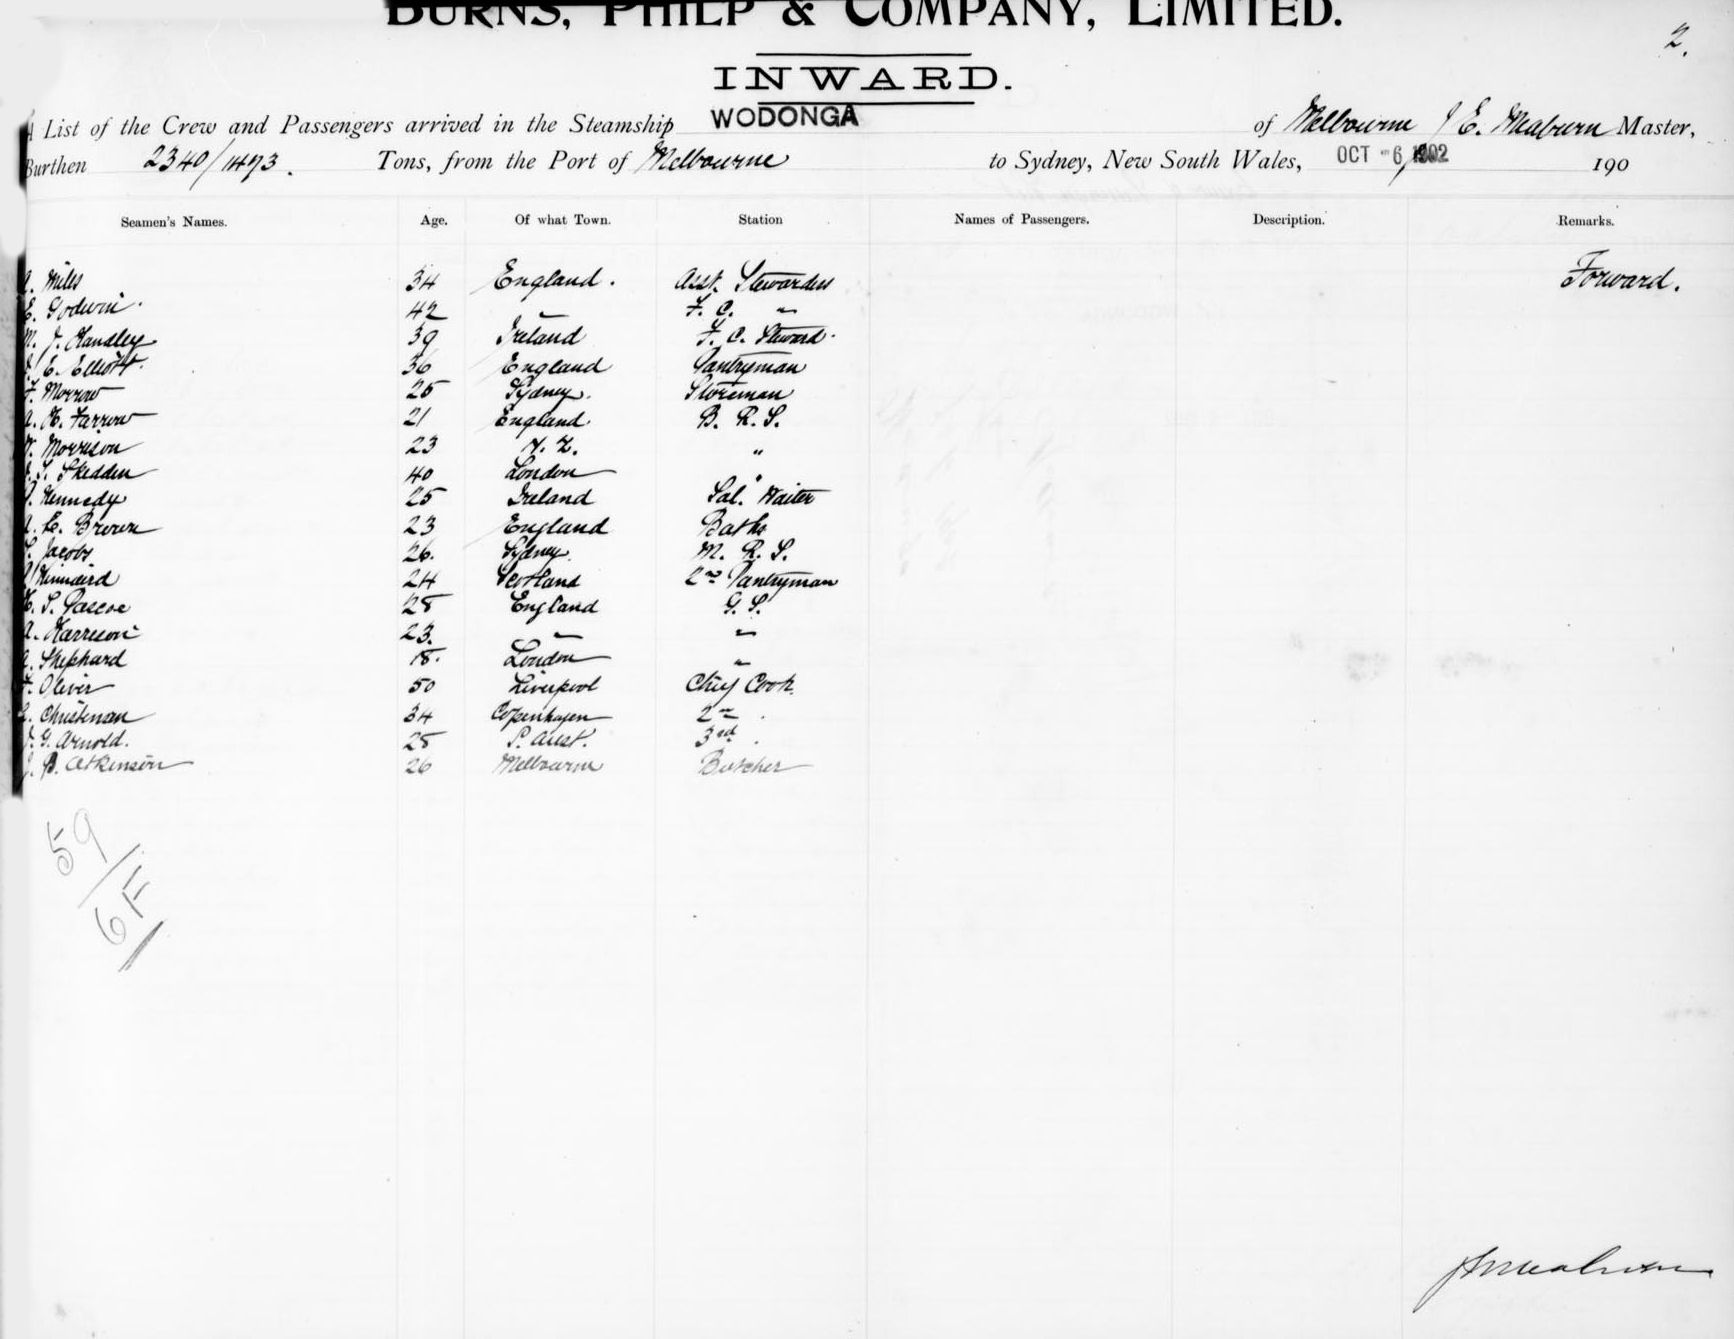 BURNS, PHILP & COMPANY, LIMITED.
2.
INWARD.
A List of the Crew and Passengers arrived in the Steamship WODONGA of Melbourne J E. Meaburn Master,
Burthen 2340/1473. Tons, from the Port of Melbourne to Sydney, New South Wales, OCT -6 1902 190
Seamen's Names. Age. Of what Town. Station Names of Passengers. Description. Remarks.
A. Miles 34 England. Asst. Stewardess Forward.
E. Godwin 42 " F. C. "
M. J. Handley 39 Ireland F. C. Steward.
J. E. Elliott. 36 England Pantryman
F. Morrow 25 Sydney. Storeman
A. H. Farrow 21 England B. R. S.
Morrison 23 N. Z. "
S. Skedden 40 London "
Kennedy 25 Ireland Sal. Waiter
A. E. Brown 23 England Baths
Jacobs 26. Sydney M. R. S.
Kinnaird 24 Scotland 2nd Pantryman
H. S. Pascoe 28 England G. S.
A. Harrison 23. " "
A. Shephard 18. London "
F. Oliver 50 Liverpool Chief Cook.
Christensen 34 Copenhagen 2nd .
J. G. Arnold. 28 S. Aust. 3rd .
J. B. Atkinson 26 Melbourne Butcher
59
6F